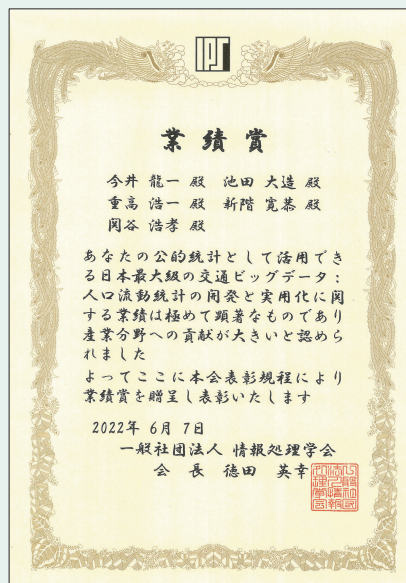 IPSJ
業績賞
今井 龍一 殿 池田 大造 殿
重高 浩一 殿 新階 寛恭 殿
関谷 浩孝 殿
あなたの公的統計として活用でき
る日本最大級の交通ビッグデータ:
人口流動統計の開発と実用化に関
する業績は極めて顕著なものであり
産業分野への貢献が大きいと認めら
れました
よってここに本会表彰規程により
業績賞を贈呈し表彰いたします
2022年 6月 7日
一般社団法人 情報処理学会
会 長 徳田 英幸